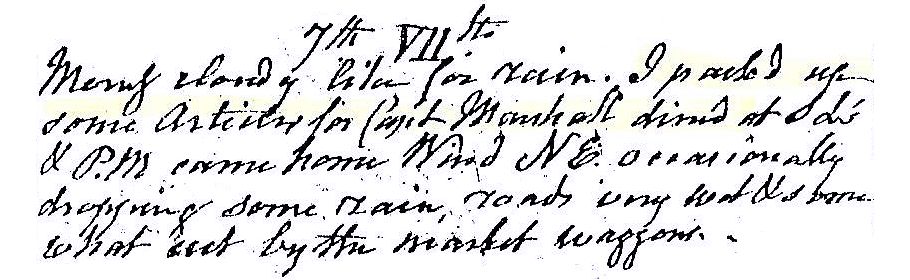 7th VIIth
Morng cloudy like for rain. I packed up
some Articles for Capt Marshall dined at Od's
& P.M came home Wind N.E. occasionally
dropping some rain, roads very wet & some
what cut by the market waggons. -